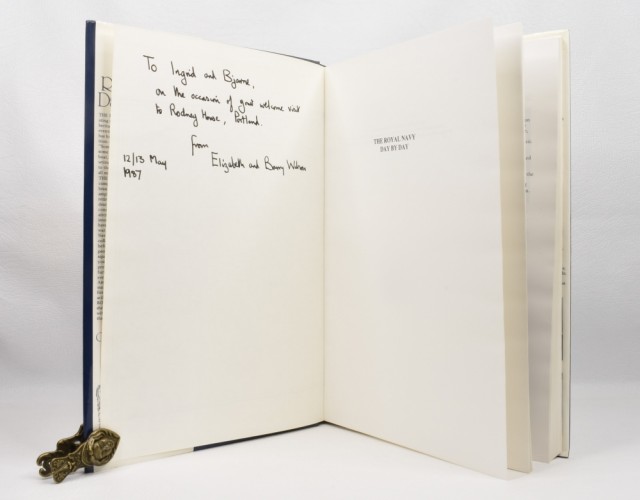 To Ingrid and Bjarne,
on the occasion of your welcome visit
to Rodney House, Portland.
from
Elizabeth and Barry Wilson
12/13 May
1987
THE ROYAL NAVY
DAY BY DAY